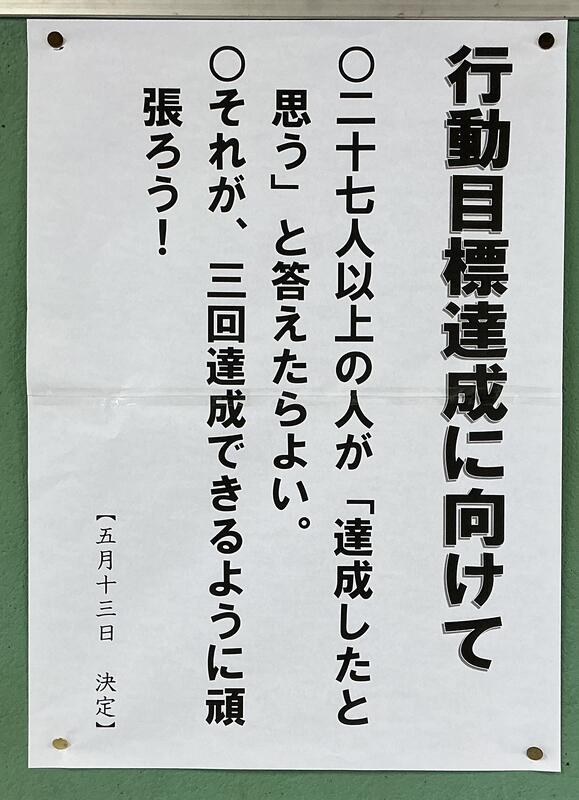 行動目標達成に向けて
○二十七人以上の人が「達成したと
思う」と答えたらよい。
○それが、三回達成できるように頑
張ろう！
【五月十三日　決定】